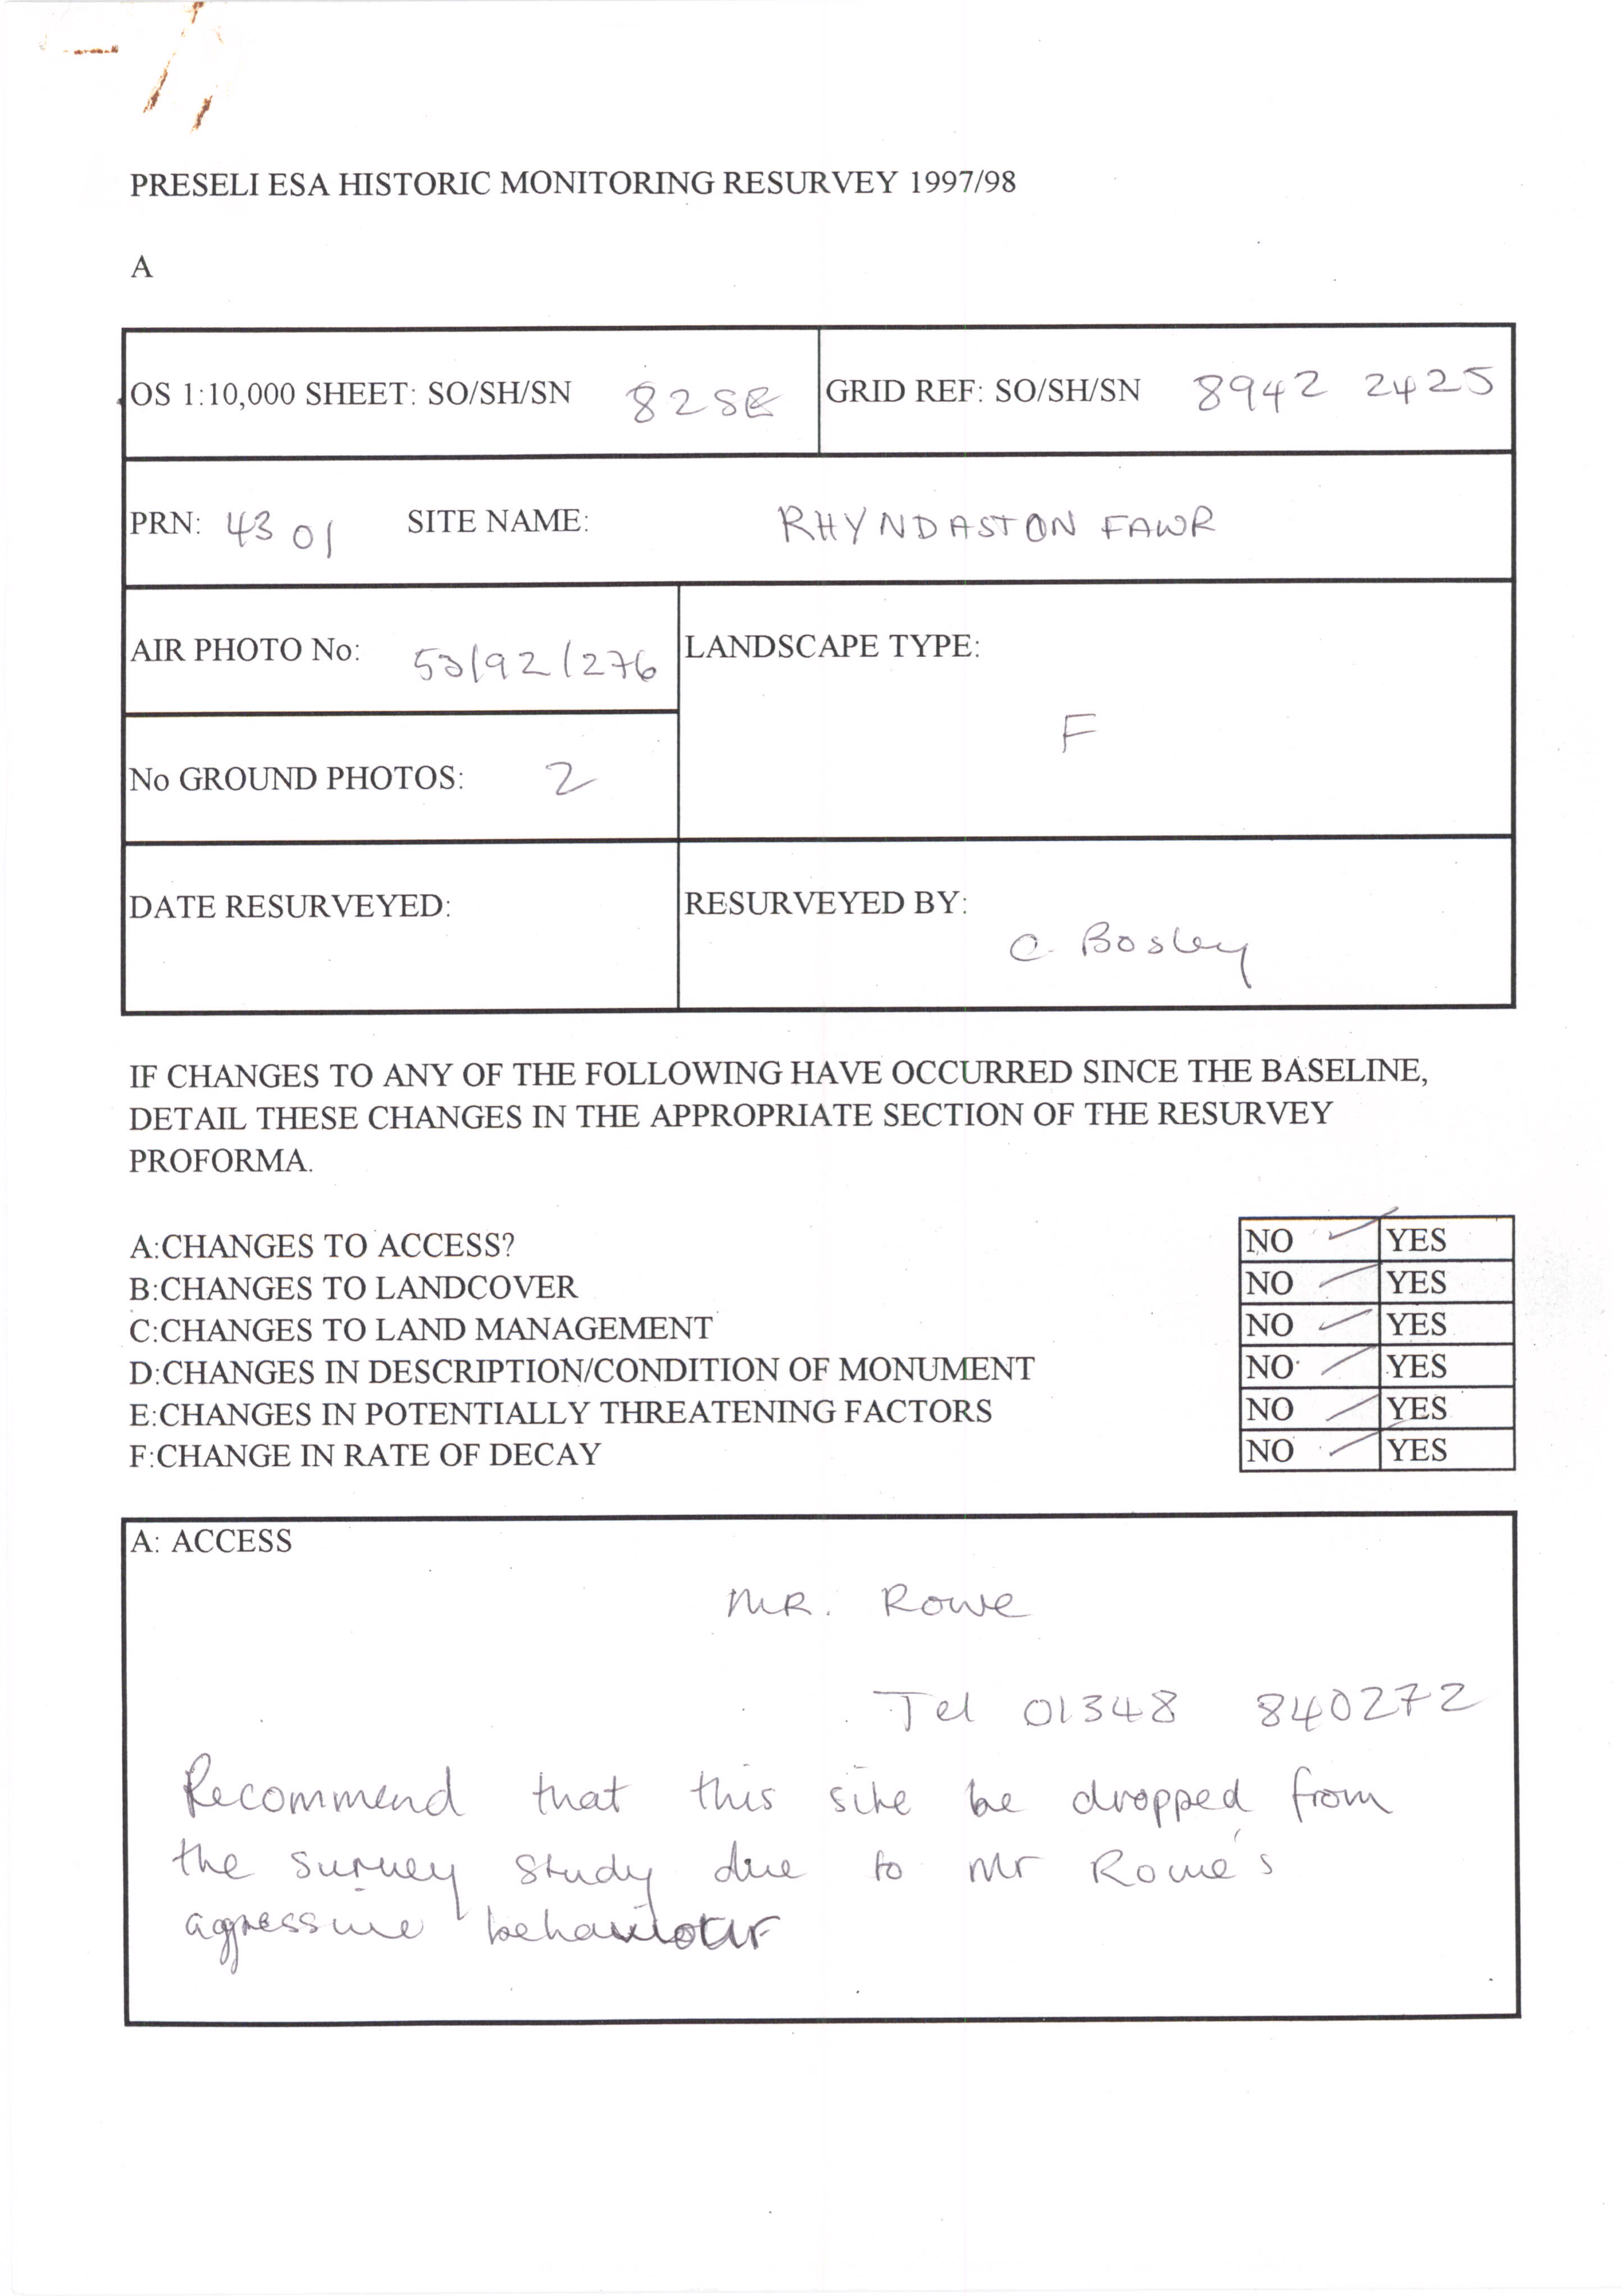 PRESELI ESA HISTORIC MONITORING RESURVEY 1997/98
A
OS 1:10,000 SHEET: SO/SH/SN 82SE
GRID REF: SO/SH/SN 8942 2425
PRN: 4301 SITE NAME: RHYNDASTON FAWR
AIR PHOTO No: 53/92/276
LANDSCAPE TYPE:
F
No GROUND PHOTOS: 2
DATE RESURVEYED:
RESURVEYED BY:
C. Bosley
IF CHANGES TO ANY OF THE FOLLOWING HAVE OCCURRED SINCE THE BASELINE,
DETAIL THESE CHANGES IN THE APPROPRIATE SECTION OF THE RESURVEY
PROFORMA.
A:CHANGES TO ACCESS? NO ✓ YES
B:CHANGES TO LANDCOVER NO ✓ YES
C:CHANGES TO LAND MANAGEMENT NO ✓ YES
D:CHANGES IN DESCRIPTION/CONDITION OF MONUMENT NO ✓ YES
E:CHANGES IN POTENTIALLY THREATENING FACTORS NO ✓ YES
F:CHANGE IN RATE OF DECAY NO ✓ YES
A: ACCESS
MR. Rowe
Tel 01348 840272
Recommend that this site be dropped from
the survey study due to Mr Rowe's
agressive behaviour